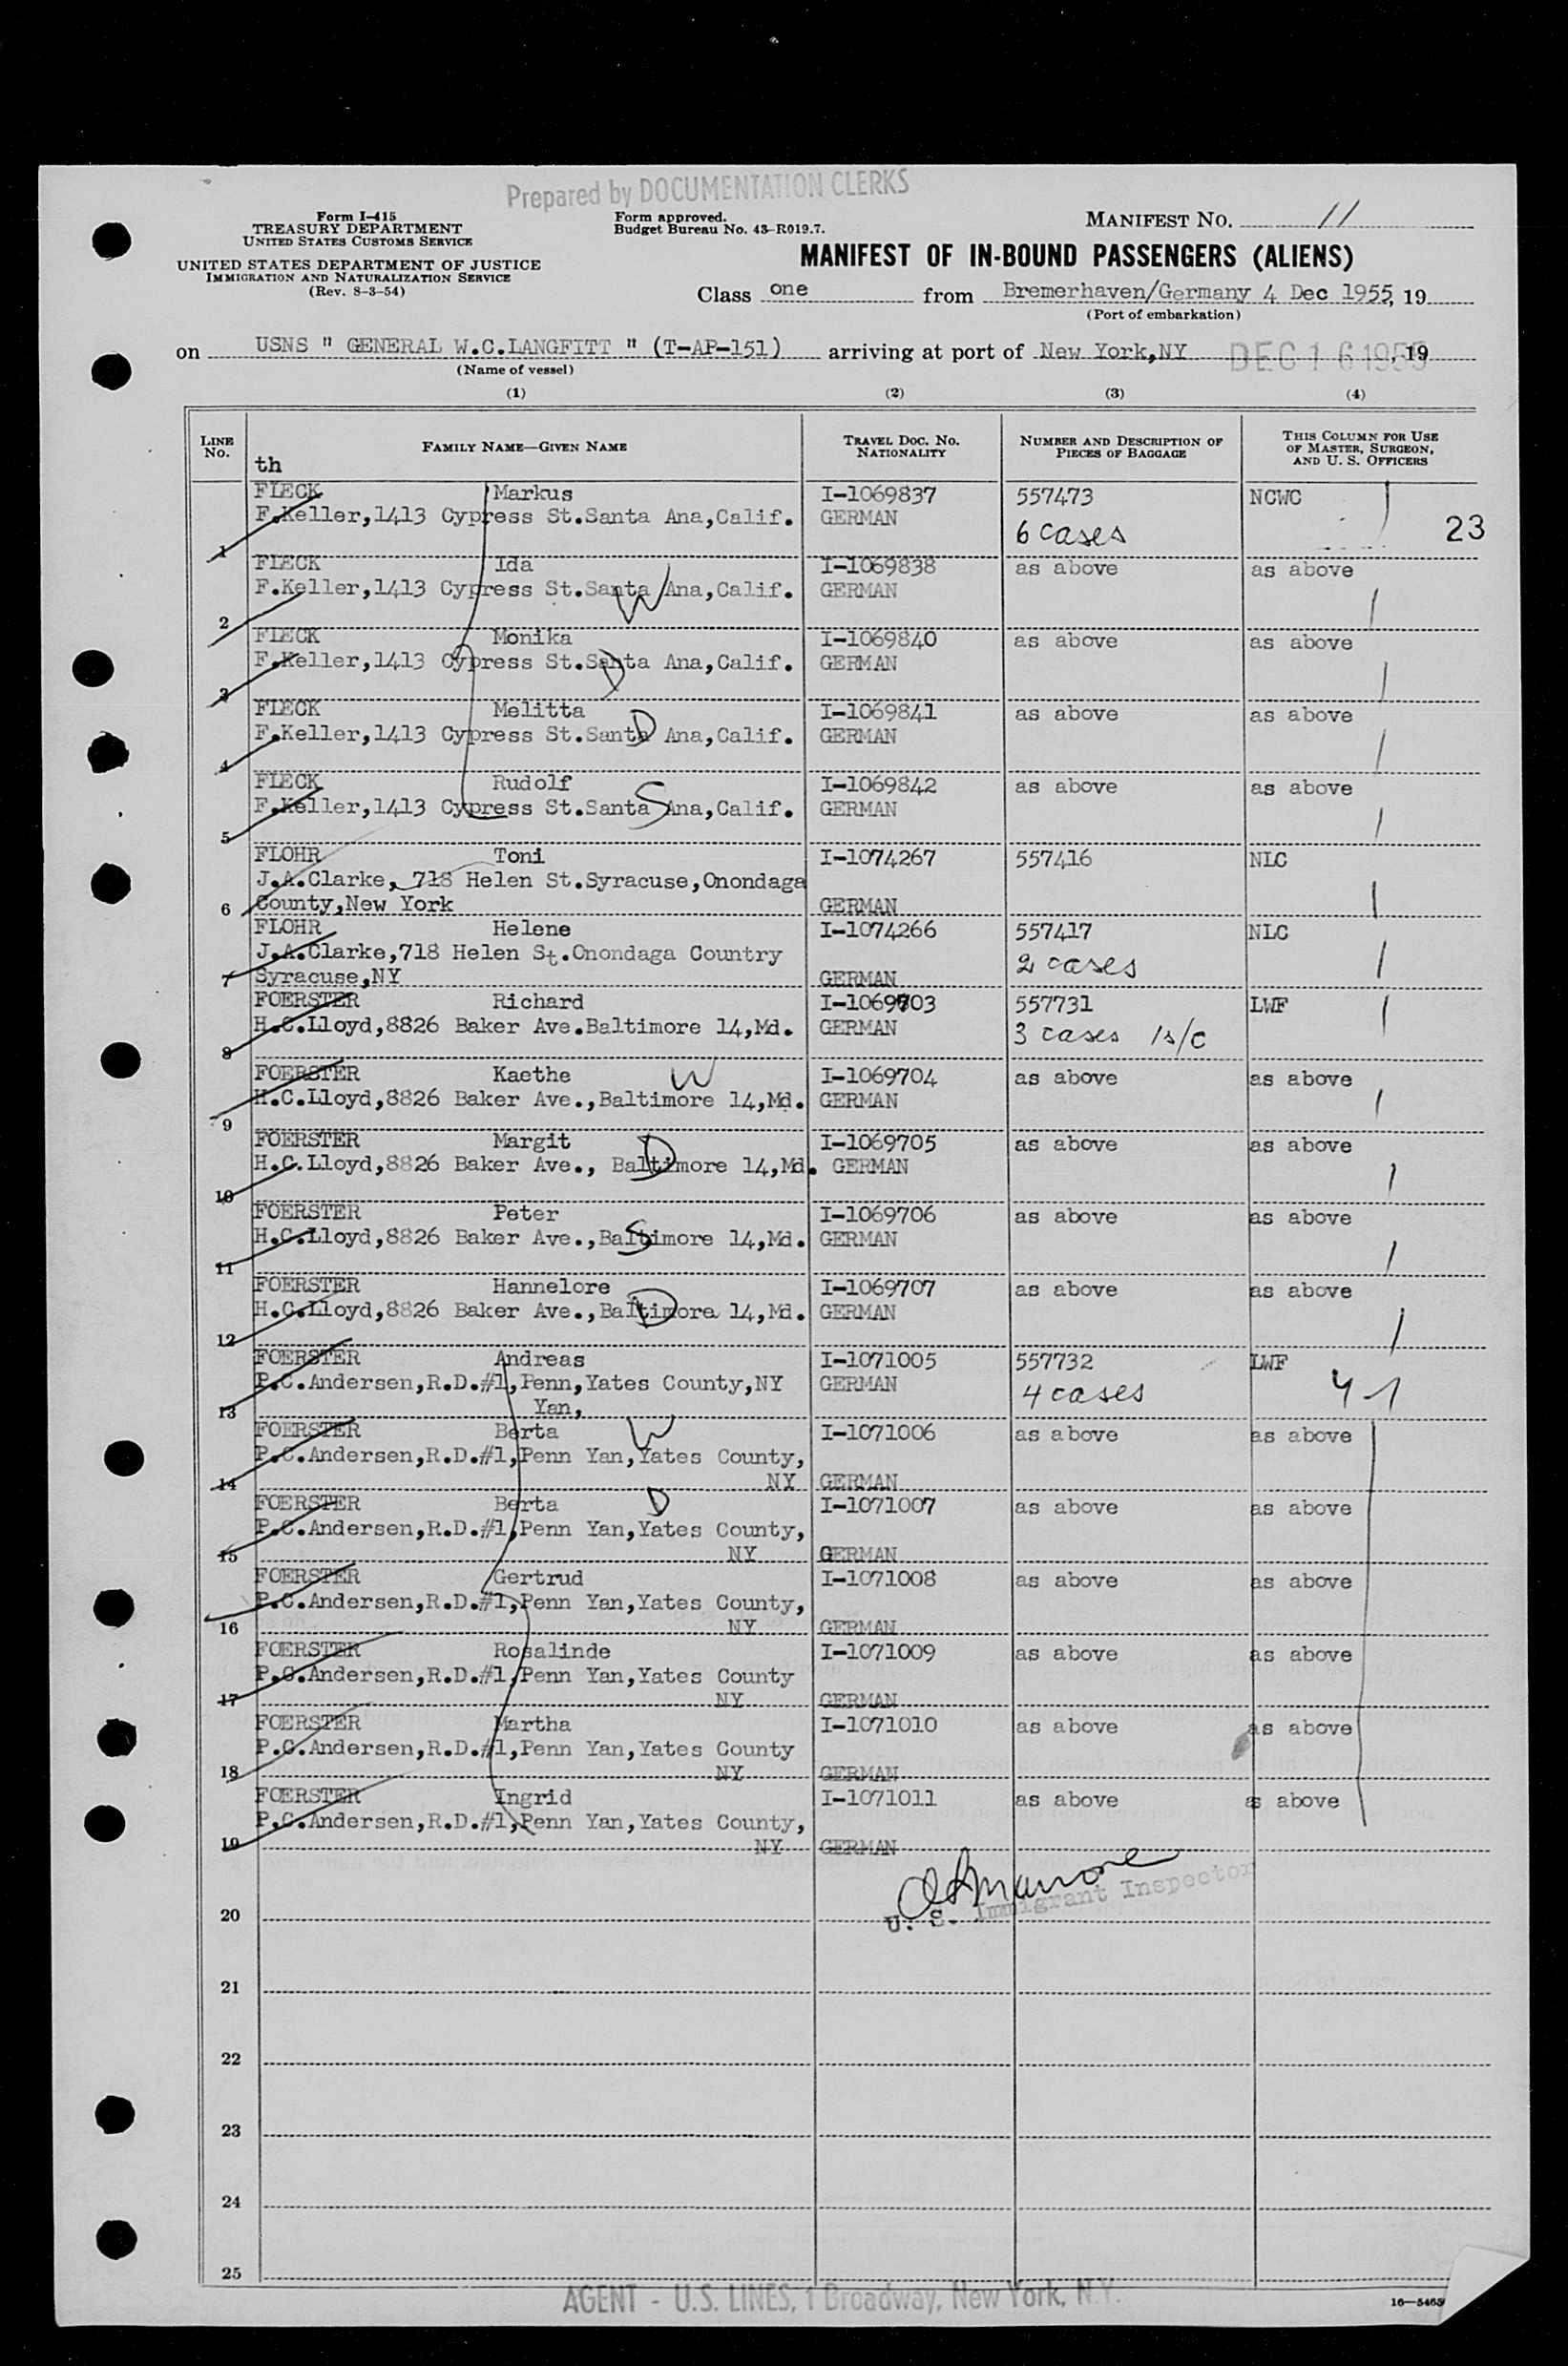 Prepared by DOCUMENTATION CLERKS
Form I-415
TREASURY DEPARTMENT
UNITED STATES CUSTOMS SERVICE
UNITED STATES DEPARTMENT OF JUSTICE
IMMIGRATION AND NATURALIZATION SERVICE
(Rev. 8-3-54)
Form approved.
Budget Bureau No. 43-R019.7.
MANIFEST NO. 11
MANIFEST OF IN-BOUND PASSENGERS (ALIENS)
Class one from Bremerhaven/Germany 4 Dec 1955, 19
(Port of embarkation)
on USNS " GENERAL W.C.LANGFITT " (T-AP-151) arriving at port of New York,NY DEC 16 1955, 19
(Name of vessel)
(1) (2) (3) (4)
LINE NO. FAMILY NAME—GIVEN NAME TRAVEL DOC. NO. NATIONALITY NUMBER AND DESCRIPTION OF PIECES OF BAGGAGE THIS COLUMN FOR USE OF MASTER, SURGEON, AND U. S. OFFICERS
th
FIECK Markus I-1069837 557473 NCWC
F.Keller,1413 Cypress St.Santa Ana,Calif. GERMAN 6 cases 23
1
FIECK Ida I-1069838 as above as above
F.Keller,1413 Cypress St.Santa Ana,Calif. GERMAN W
2
FIECK Monika I-1069840 as above as above
F.Keller,1413 Cypress St.Santa Ana,Calif. GERMAN D
3
FIECK Melitta I-1069841 as above as above
F.Keller,1413 Cypress St.Santa Ana,Calif. GERMAN D
4
FIECK Rudolf I-1069842 as above as above
F.Keller,1413 Cypress St.Santa Ana,Calif. GERMAN S
5
FLOHR Toni I-1074267 557416 NLC
J.A.Clarke, 718 Helen St.Syracuse,Onondaga
6 County,New York GERMAN
FLOHR Helene I-1074266 557417 NLC
J.A.Clarke,718 Helen St.Onondaga Country 2 cases
7 Syracuse,NY GERMAN
FOERSTER Richard I-1069703 557731 LWF
H.C.Lloyd,8826 Baker Ave.Baltimore 14,Md. GERMAN 3 cases 1s/c
8
FOERSTER Kaethe W I-1069704 as above as above
H.C.Lloyd,8826 Baker Ave.,Baltimore 14,Md. GERMAN
9
FOERSTER Margit D I-1069705 as above as above
H.C.Lloyd,8826 Baker Ave., Baltimore 14,Md. GERMAN
10
FOERSTER Peter I-1069706 as above as above
H.C.Lloyd,8826 Baker Ave.,Baltimore 14,Md. GERMAN S
11
FOERSTER Hannelore I-1069707 as above as above
H.C.Lloyd,8826 Baker Ave.,Baltimore 14,Md. GERMAN D
12
FOERSTER Andreas I-1071005 557732 LWF
P.C.Andersen,R.D.#1,Penn,Yates County,NY GERMAN 4 cases 4-1
13 Yan,
FOERSTER Berta W I-1071006 as above as above
P.C.Andersen,R.D.#1,Penn Yan,Yates County,
14 NY GERMAN
FOERSTER Berta D I-1071007 as above as above
P.C.Andersen,R.D.#1,Penn Yan,Yates County,
15 NY GERMAN
FOERSTER Gertrud I-1071008 as above as above
P.C.Andersen,R.D.#1,Penn Yan,Yates County,
16 NY GERMAN
FOERSTER Rosalinde I-1071009 as above as above
P.C.Andersen,R.D.#1,Penn Yan,Yates County
17 NY GERMAN
FOERSTER Martha I-1071010 as above as above
P.C.Andersen,R.D.#1,Penn Yan,Yates County
18 NY GERMAN
FOERSTER Ingrid I-1071011 as above as above
P.C.Andersen,R.D.#1,Penn Yan,Yates County,
19 NY GERMAN
U. S. Immigrant Inspector
20
21
22
23
24
25
AGENT - U.S. LINES, 1 Broadway, New York, N.Y.